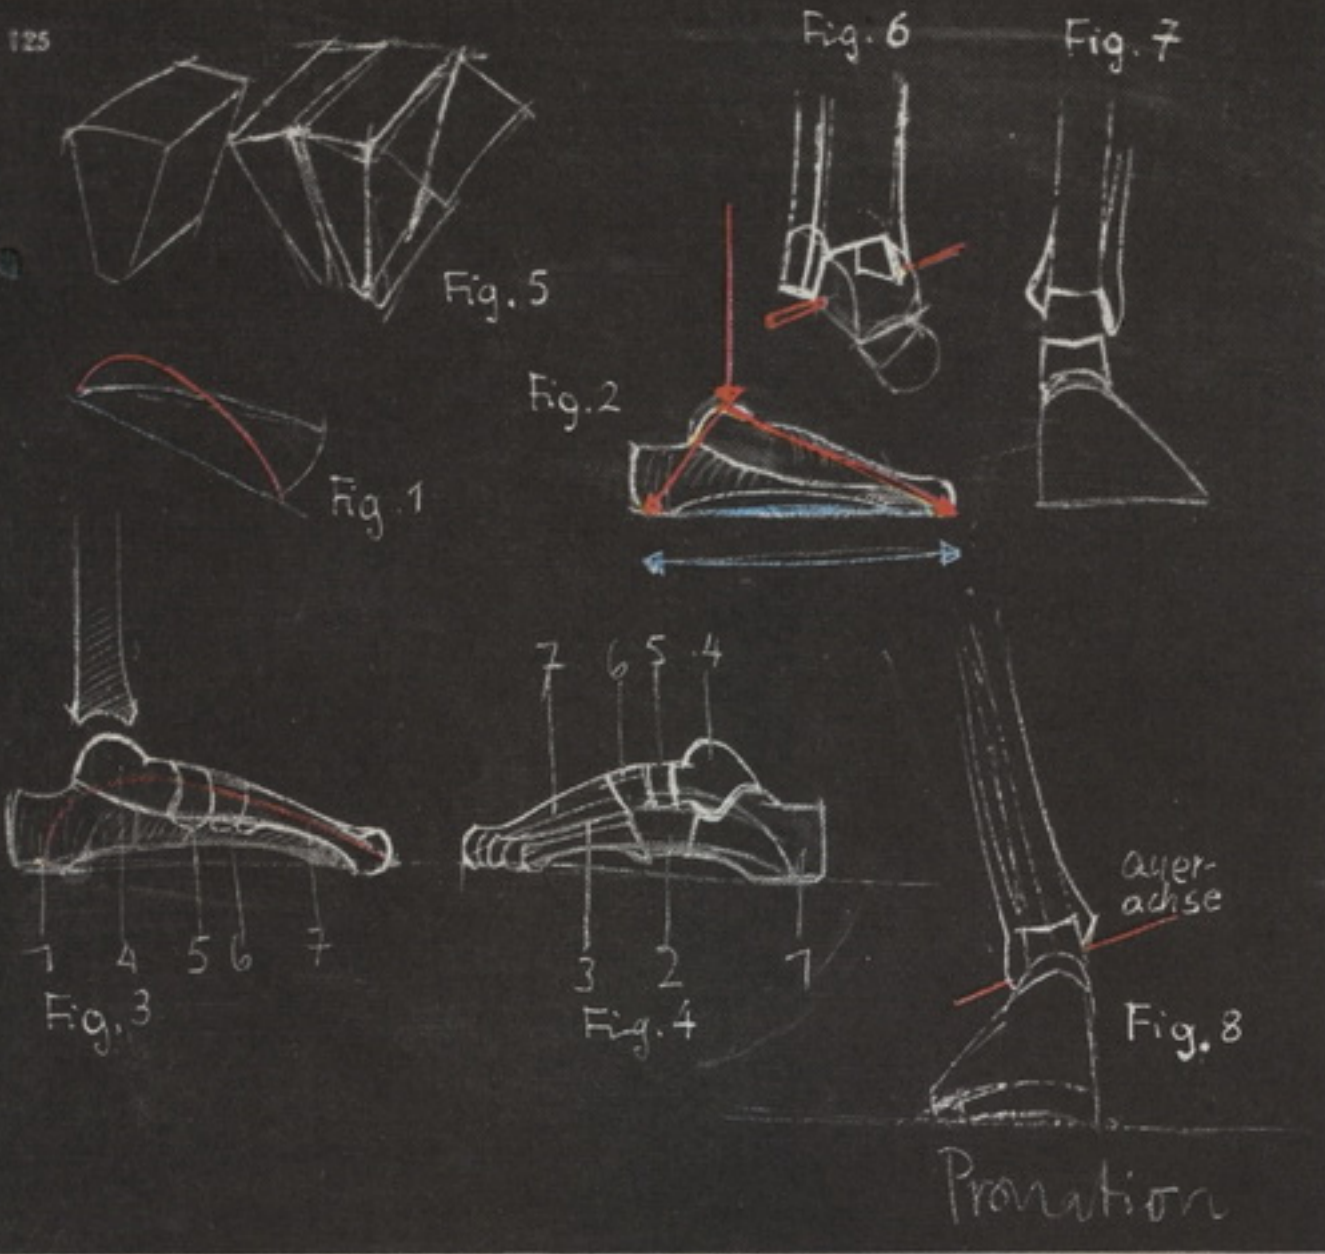 125
Fig. 6
Fig. 7
Fig. 5
Fig. 2
Fig. 1
7 6 5 4
1 4 5 6 7
3 2 1
Fig. 3
Fig. 4
Quer-
achse
Fig. 8
Pronation